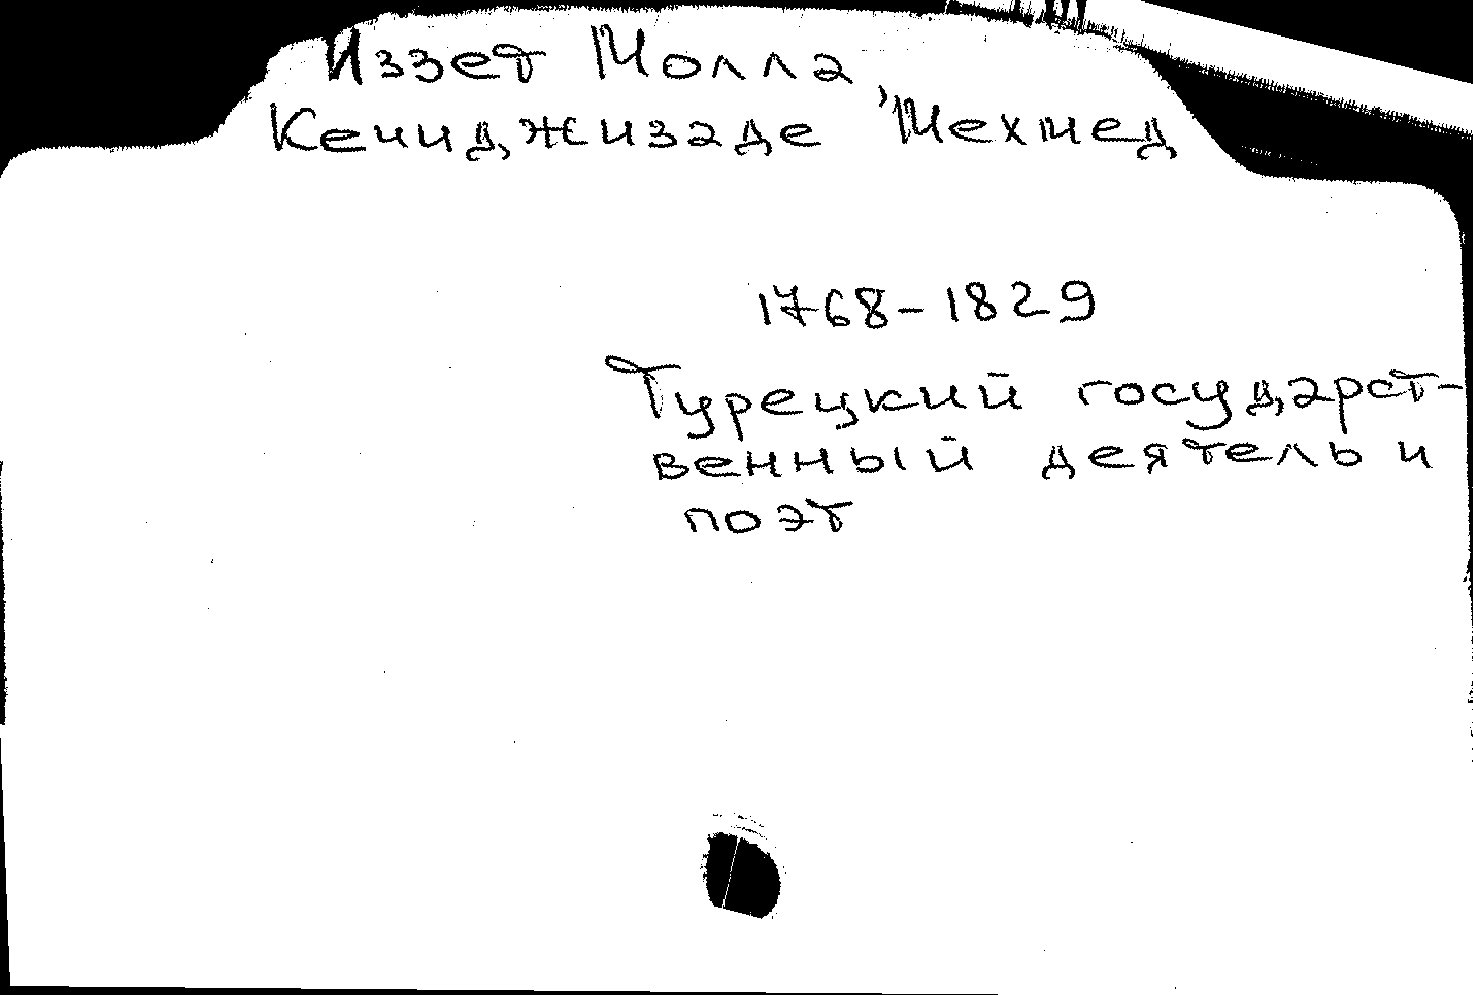 Иззет Молла
Кечиджизаде Мехмед
1768-1829
Турецкий государст-
венный деятель и
поэт